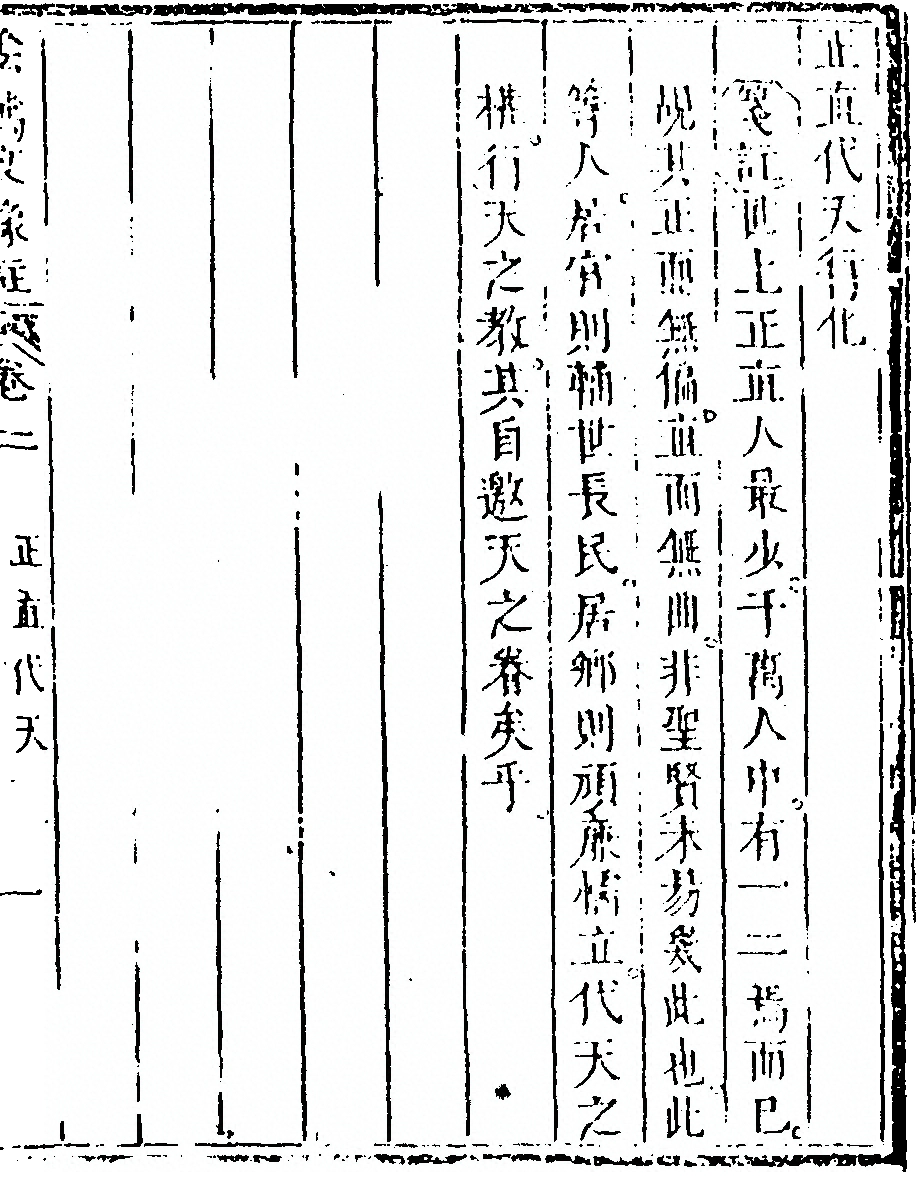 正直代天行化
箋註世上正直人最少千萬人中有一二焉而已
況其正而無偏直而無曲非聖賢未易幾此也此
等人居官則輔世長民居鄉則頑廉懦立代天之
權行天之教其自邀天之眷矣乎
文像註 卷二 正直代天 一